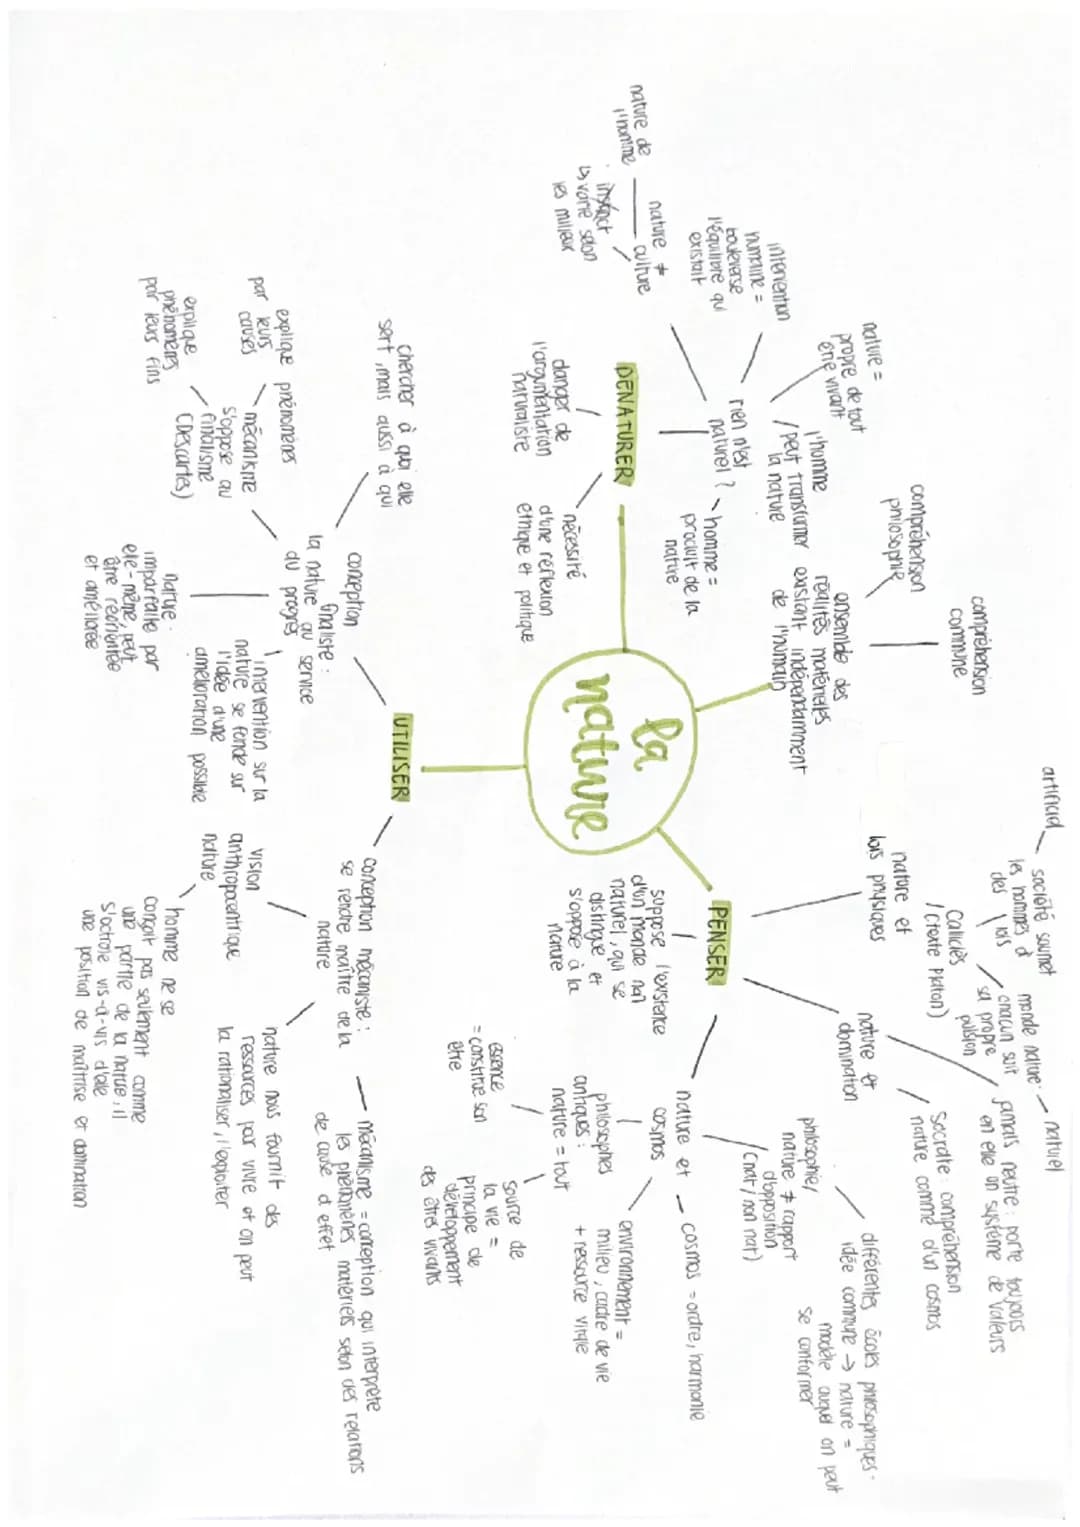 la
nature
compréhension
commune
compréhension
philosophie
ensemble des
réalités matérielles
existant indépendamment
de l'humain
nature =
propre de tout
être vivant
l'homme
peut transformer
la nature
intervention
humaine =
bouleverse
l'équilibre qui
existait
rien n'est
naturel ?
homme =
produit de la
nature
nature de
l'homme
nature ≠
culture
instinct
↳ varie selon
les milieux
DENATURER
danger de
l'argumentation
naturaliste
nécessité
d'une réflexion
éthique et politique
PENSER
artificiel
société soumet
les hommes à
des lois
monde nature:
chacun suit
sa propre
pulsion
naturel
Calliclès
(texte Platon)
nature et
lois physiques
jamais neutre : porte toujours
en elle un système de valeurs
Socrate : compréhension
nature comme d'un cosmos
nature et
domination
suppose l'existence
d'un monde non
naturel, qui se
distingue et
s'oppose à la
nature
philosophie,
nature ≠ rapport
d'opposition
(nat / non nat)
différentes écoles philosophiques.
idée commune → nature =
modèle auquel on peut
se conformer
nature et
cosmos
cosmos = ordre, harmonie
environnement =
milieu, cadre de vie
+ ressource
philosophes
antiques :
nature = tout
essence
= constitue son
être
source de
la vie =
principe de
développement
des êtres vivants
UTILISER
conception
finaliste :
la nature au service
du progrès
chercher à quoi elle
sert, mais aussi à qui
mécanisme
s'oppose au
finalisme
(Descartes)
explique phénomènes
par leurs
causes
explique
phénomènes
par leurs fins
nature
imparfaite par
elle-même, peut
être réorientée
et améliorée
intervention sur la
nature se fonde sur
l'idée d'une
amélioration possible
conception mécaniste :
se rendre maître de la
nature
mécanisme = conception qui interprète
les phénomènes matériels selon des relations
de cause à effet
vision
anthropocentrique
nature
homme ne se
conçoit pas seulement comme
une partie de la nature, il
s'octroie vis-à-vis d'elle
une position de maîtrise et domination
nature nous fournit des
ressources pour vivre et on peut
la rationaliser, l'exploiter